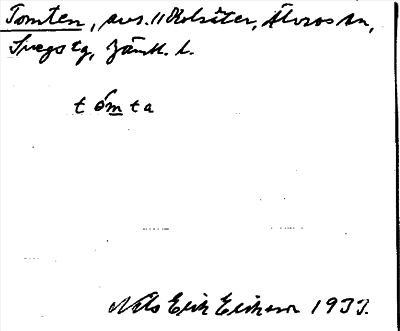 Tomten, avs. 11 Kolsäter, Älvros sn,
Svegs tg, Jämtl. l.
tómta
Nils Erik Erikson 1933.